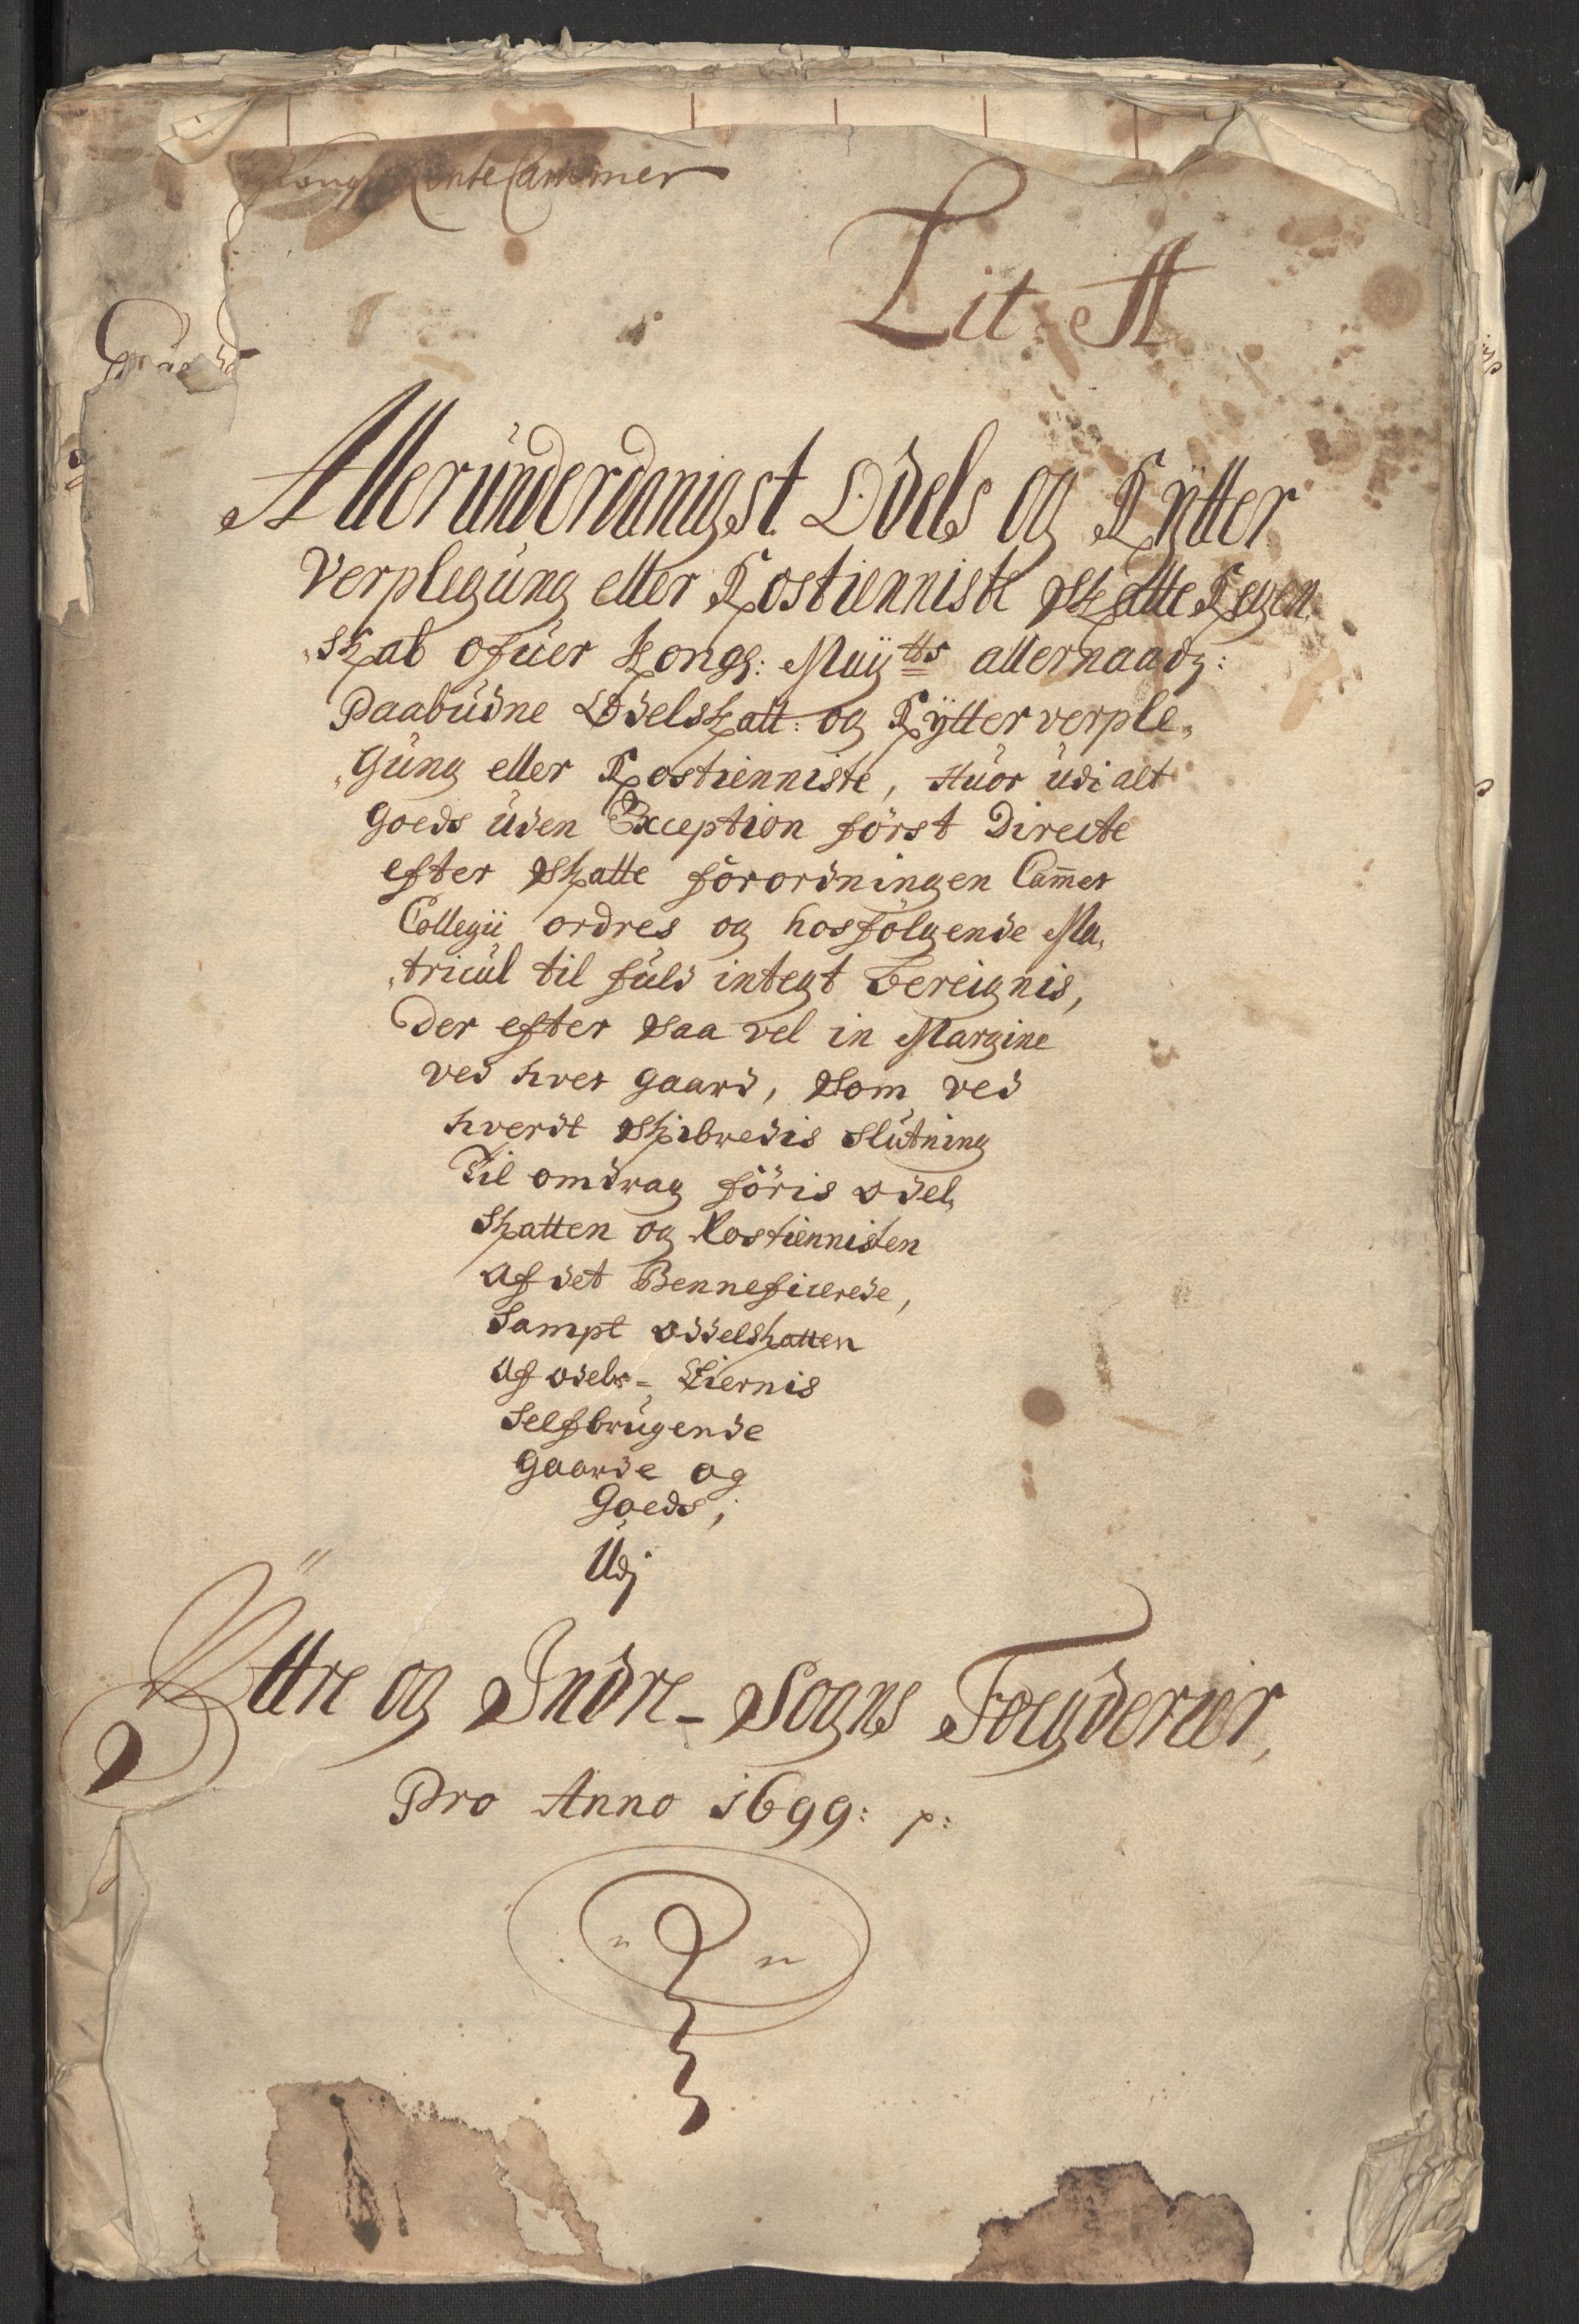 Rente Cammer
Lit: A
Alleründerdanigst Odels og Rÿtter
verplegüng eller Rostienniste Skatte Regen„
„skab ofüer Kongl: Maÿtts allernaadg:
Paabüdne Odelskatt: og Rÿtter verple„
„güng eller Rostienniste, Hüor üdi alt
goeds üden Exception först Directe
efter Skatte forordningen Cam̄er
Collegii ordres og hosfölgende Ma„
„tricül til füld integt bereignis,
der efter saa vel in Margine
ved hver gaard, som ved
hverdt Skibredis slütning
Til omdrag föris odel„
Skatten og Rostiennisten
af det Benneficerede,
Sampt oddelskatten
af odels- Eiernis
Selfbrügende
gaarde og
Goeds,
Üdj
Ÿttre og Indre- Sogns Foegderier,
Pro Anno 1699: p: